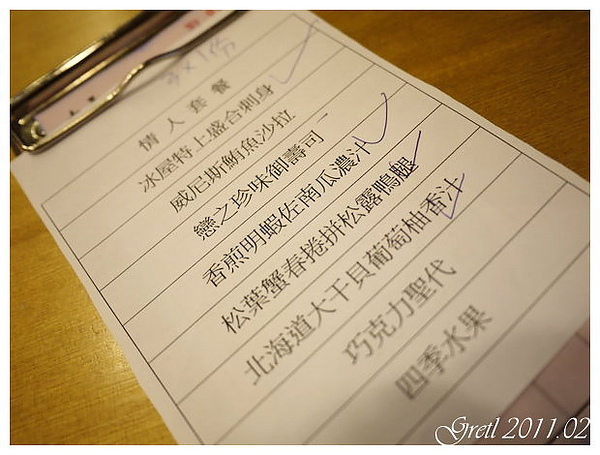 情人套餐
冰屋特上盛合刺身
威尼斯鮪魚沙拉
戀之珍味御壽司
香煎明蝦佐南瓜濃汁
松葉蟹春捲拼松露鴨腿
北海道大干貝葡萄柚香汁
巧克力聖代
四季水果
Gretl 2011.02